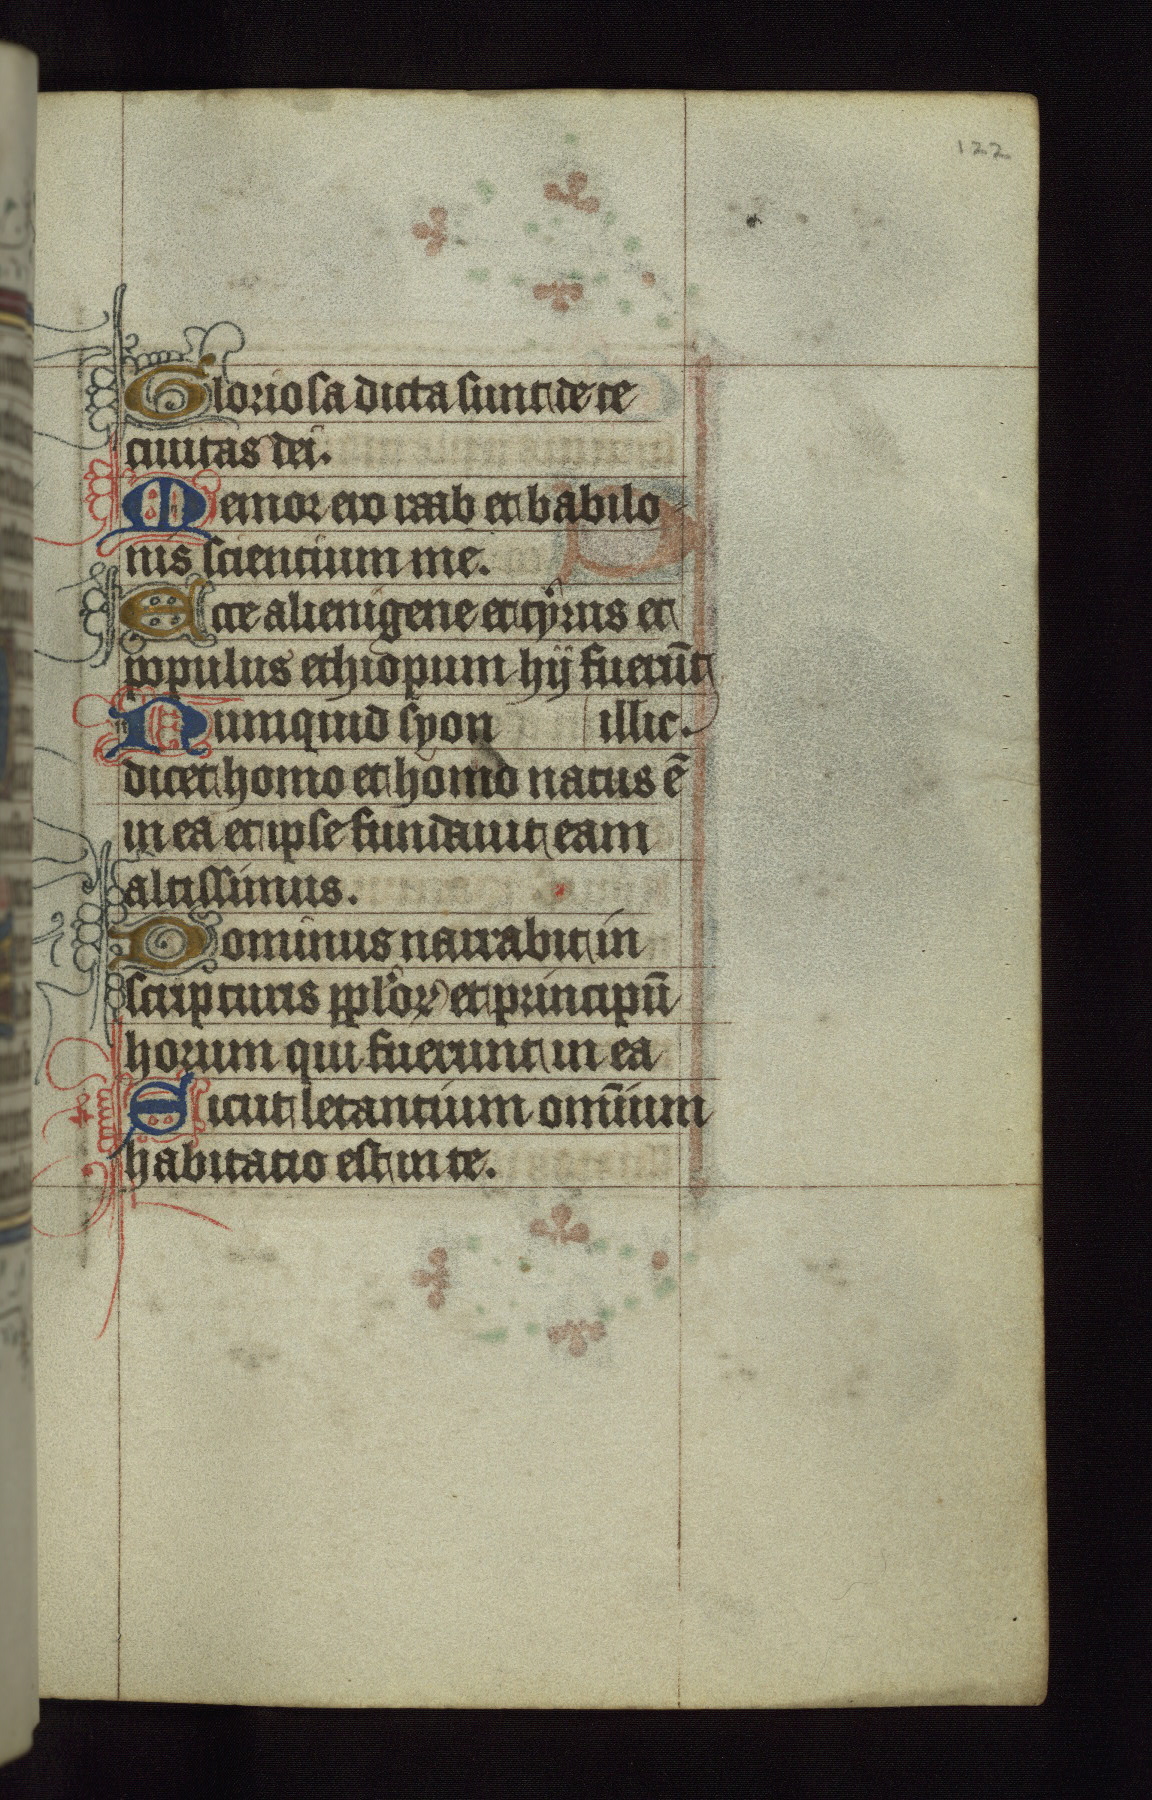 122
Gloriosa dicta sunt de te
ciuitas dei.
Memor ero raab et babilo-
nis sciencium me.
Ecce alienigene et tyrus et
populus ethiopum hij fuerūt
Numquid syon illic.
dicet homo et homo natus ē
in ea et ipse fundauit eam
altissimus.
Dominus narrabit in
scripturis pplōꝝ et principū
horum qui fuerunt in ea
Sicut letantium om̄ium
habitatio est in te.